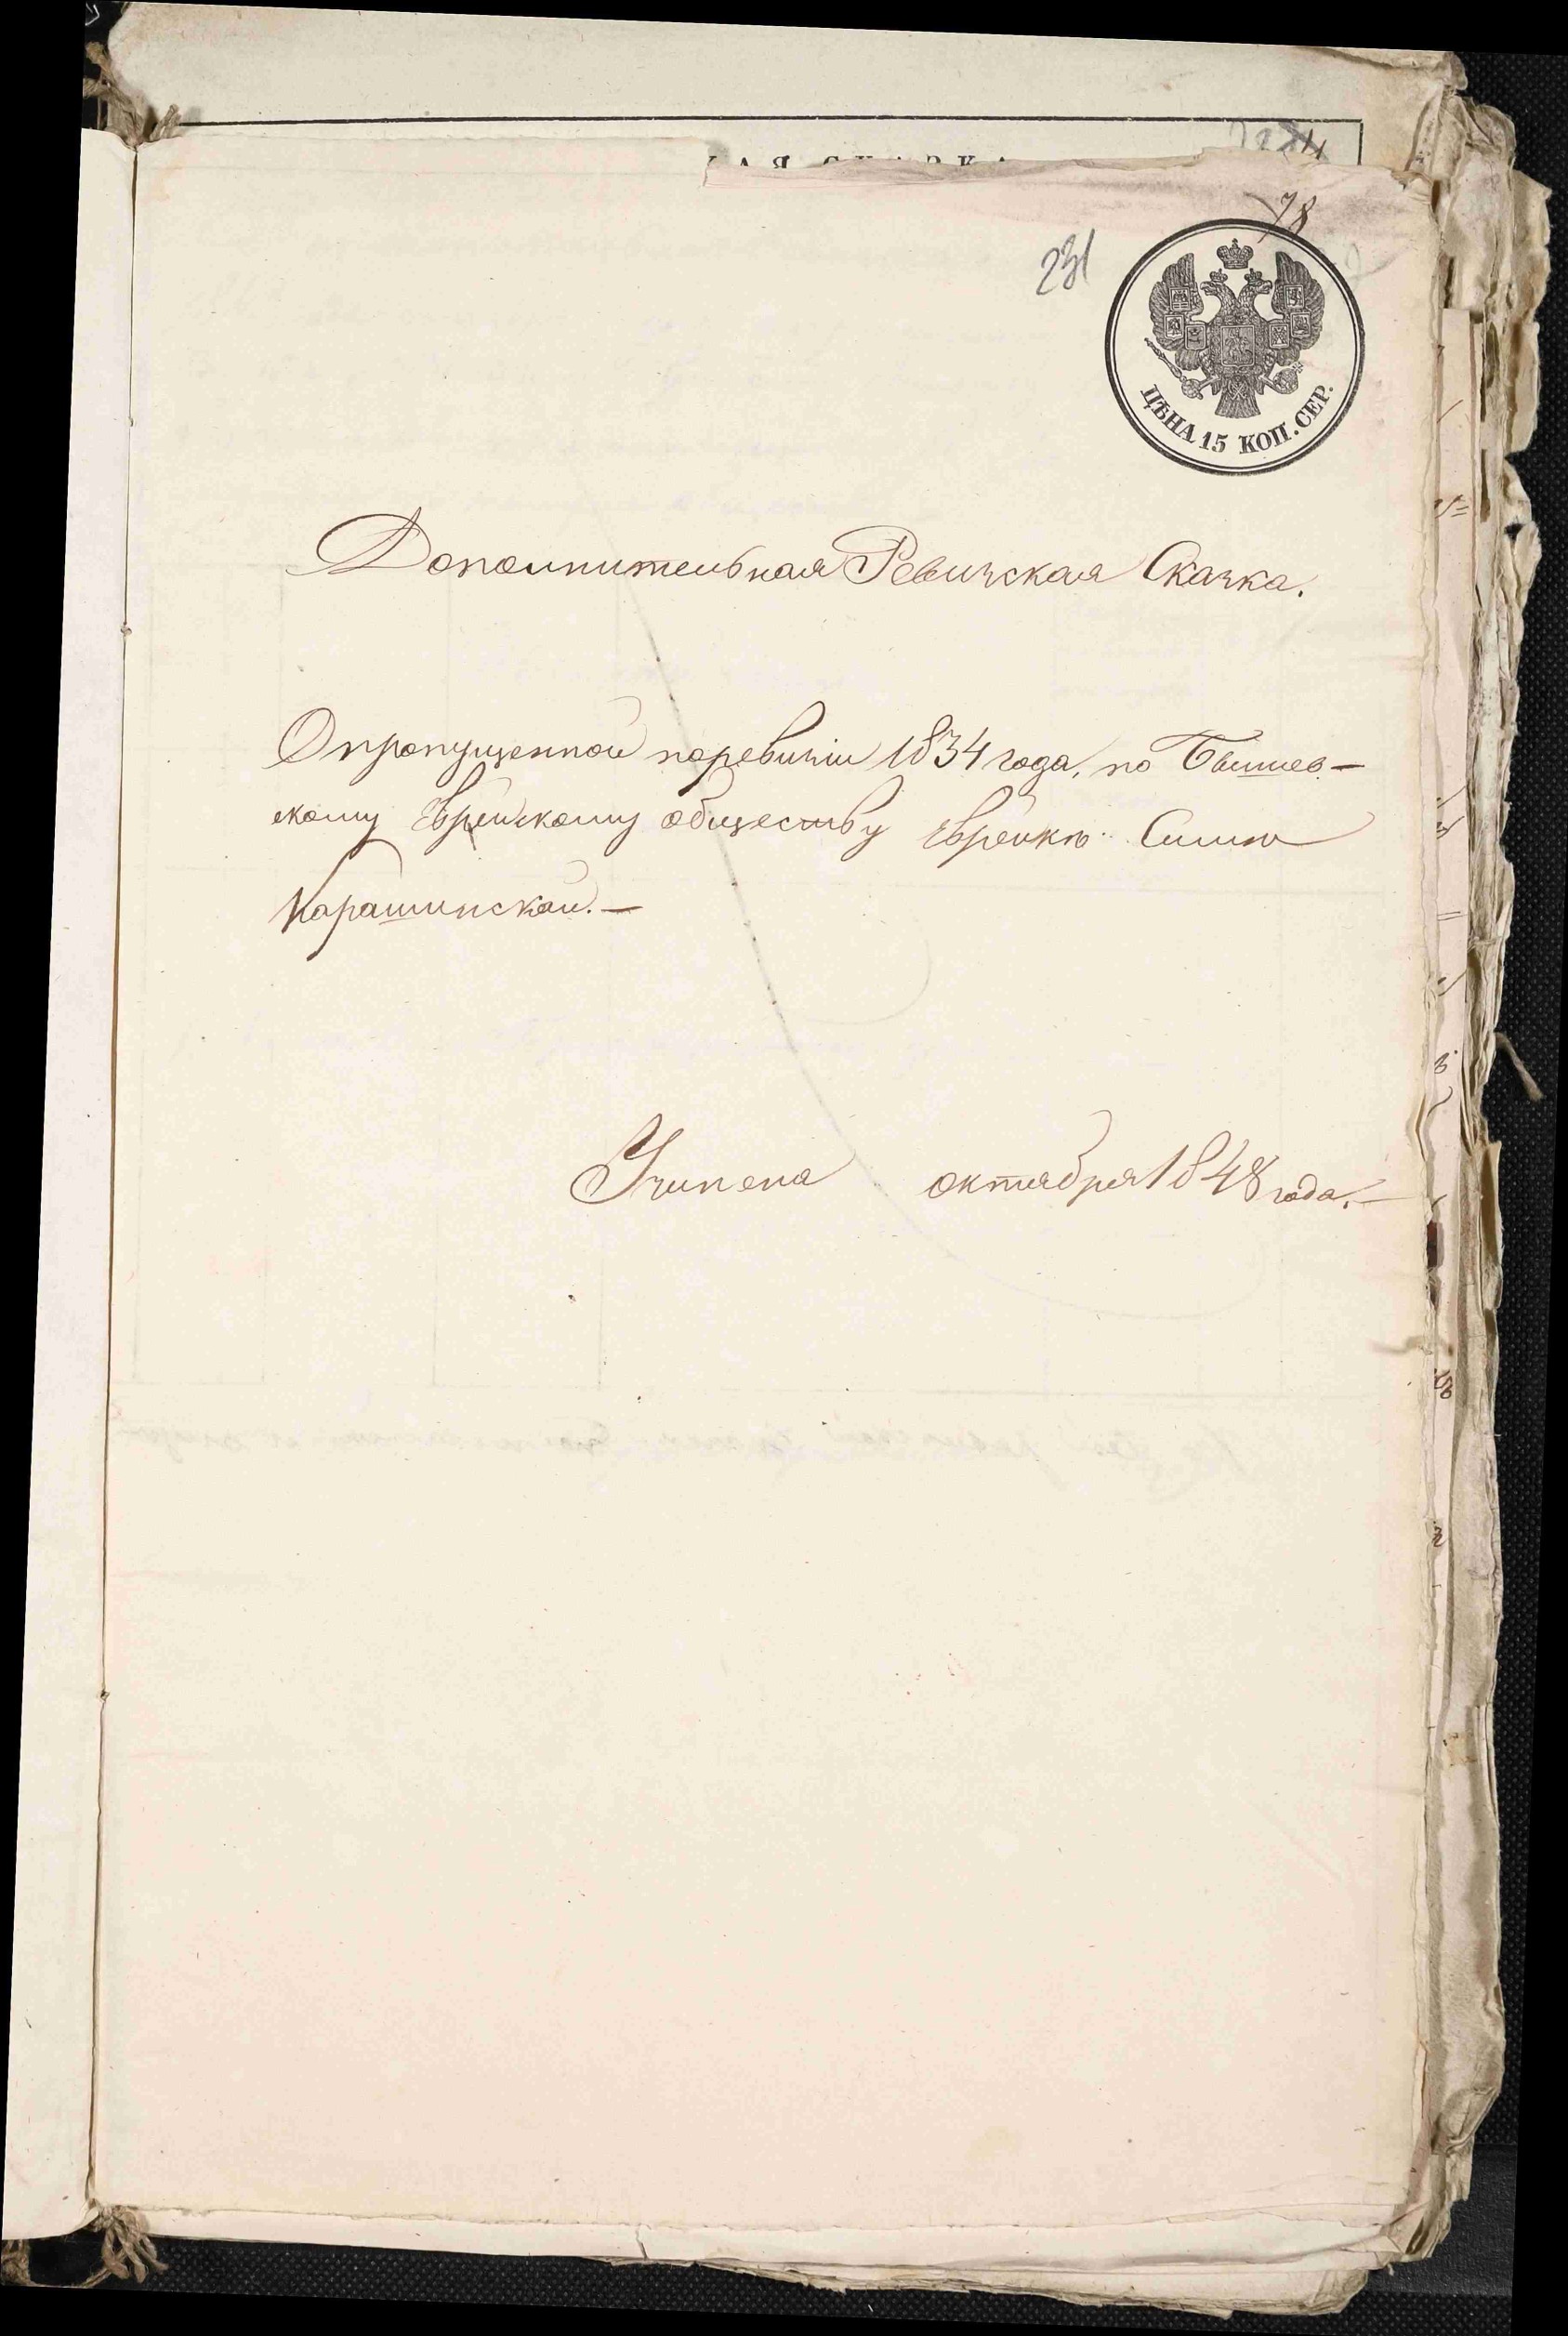 КАЯ СКАЗКА
78
231
ЦѢНА 15 КОП. СЕР.
Дополнительная Ревизская Сказка.
О пропущенной по ревизіи 1834 года, по Бышев-
скому Еврейскому обществу Еврейкѣ Симѣ
Карашинской.—
Учинена октября 1848 года.—